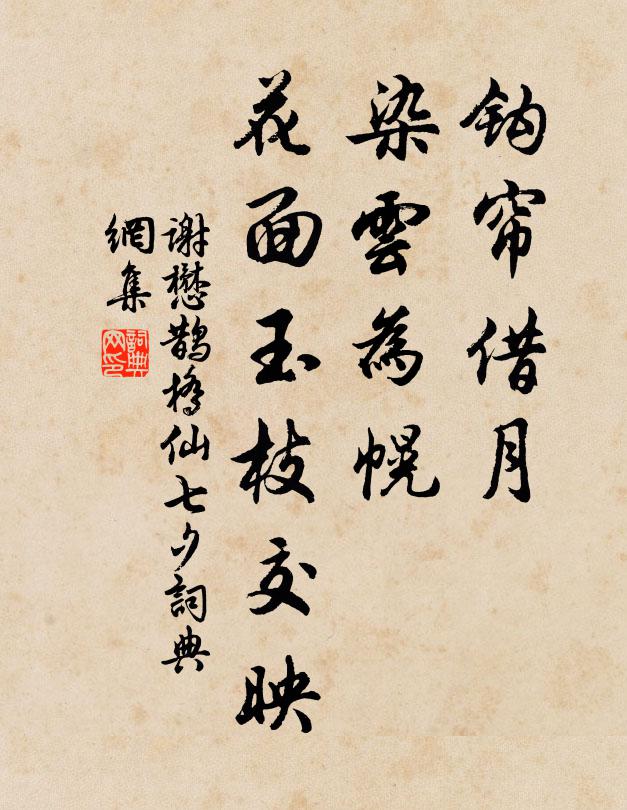 钩帘借月
染雲為幌
花面玉枝交映
谢懋鹊橋仙七夕詞典
網集
詞典
网印